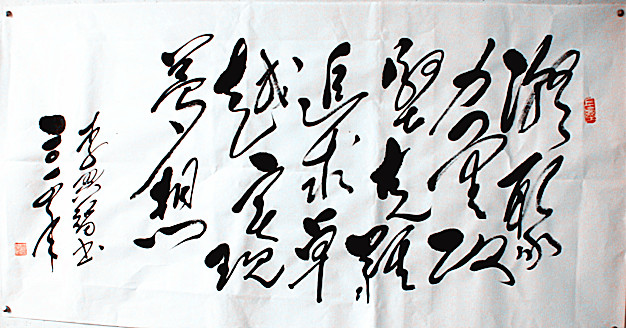 凝聚
力量攻
坚克难
追求卓
越实现
梦想
李
书
二〇一
年